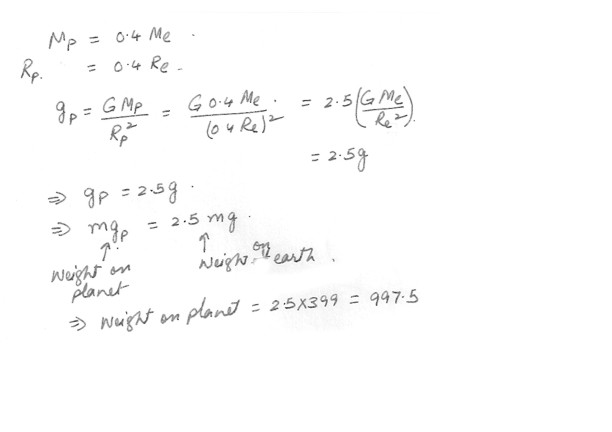 Mp = 0.4 Me .
Rp. = 0.4 Re -
gp = GMp / Rp² = G 0.4 Me . / (0.4 Re)² = 2.5 (GMe / Re²).
= 2.5g
⇒ gp = 2.5g .
⇒ mgp = 2.5 mg .
↑ ↑
Weight on planet
Weight on earth .
⇒ Weight on planet = 2.5×399 = 997.5